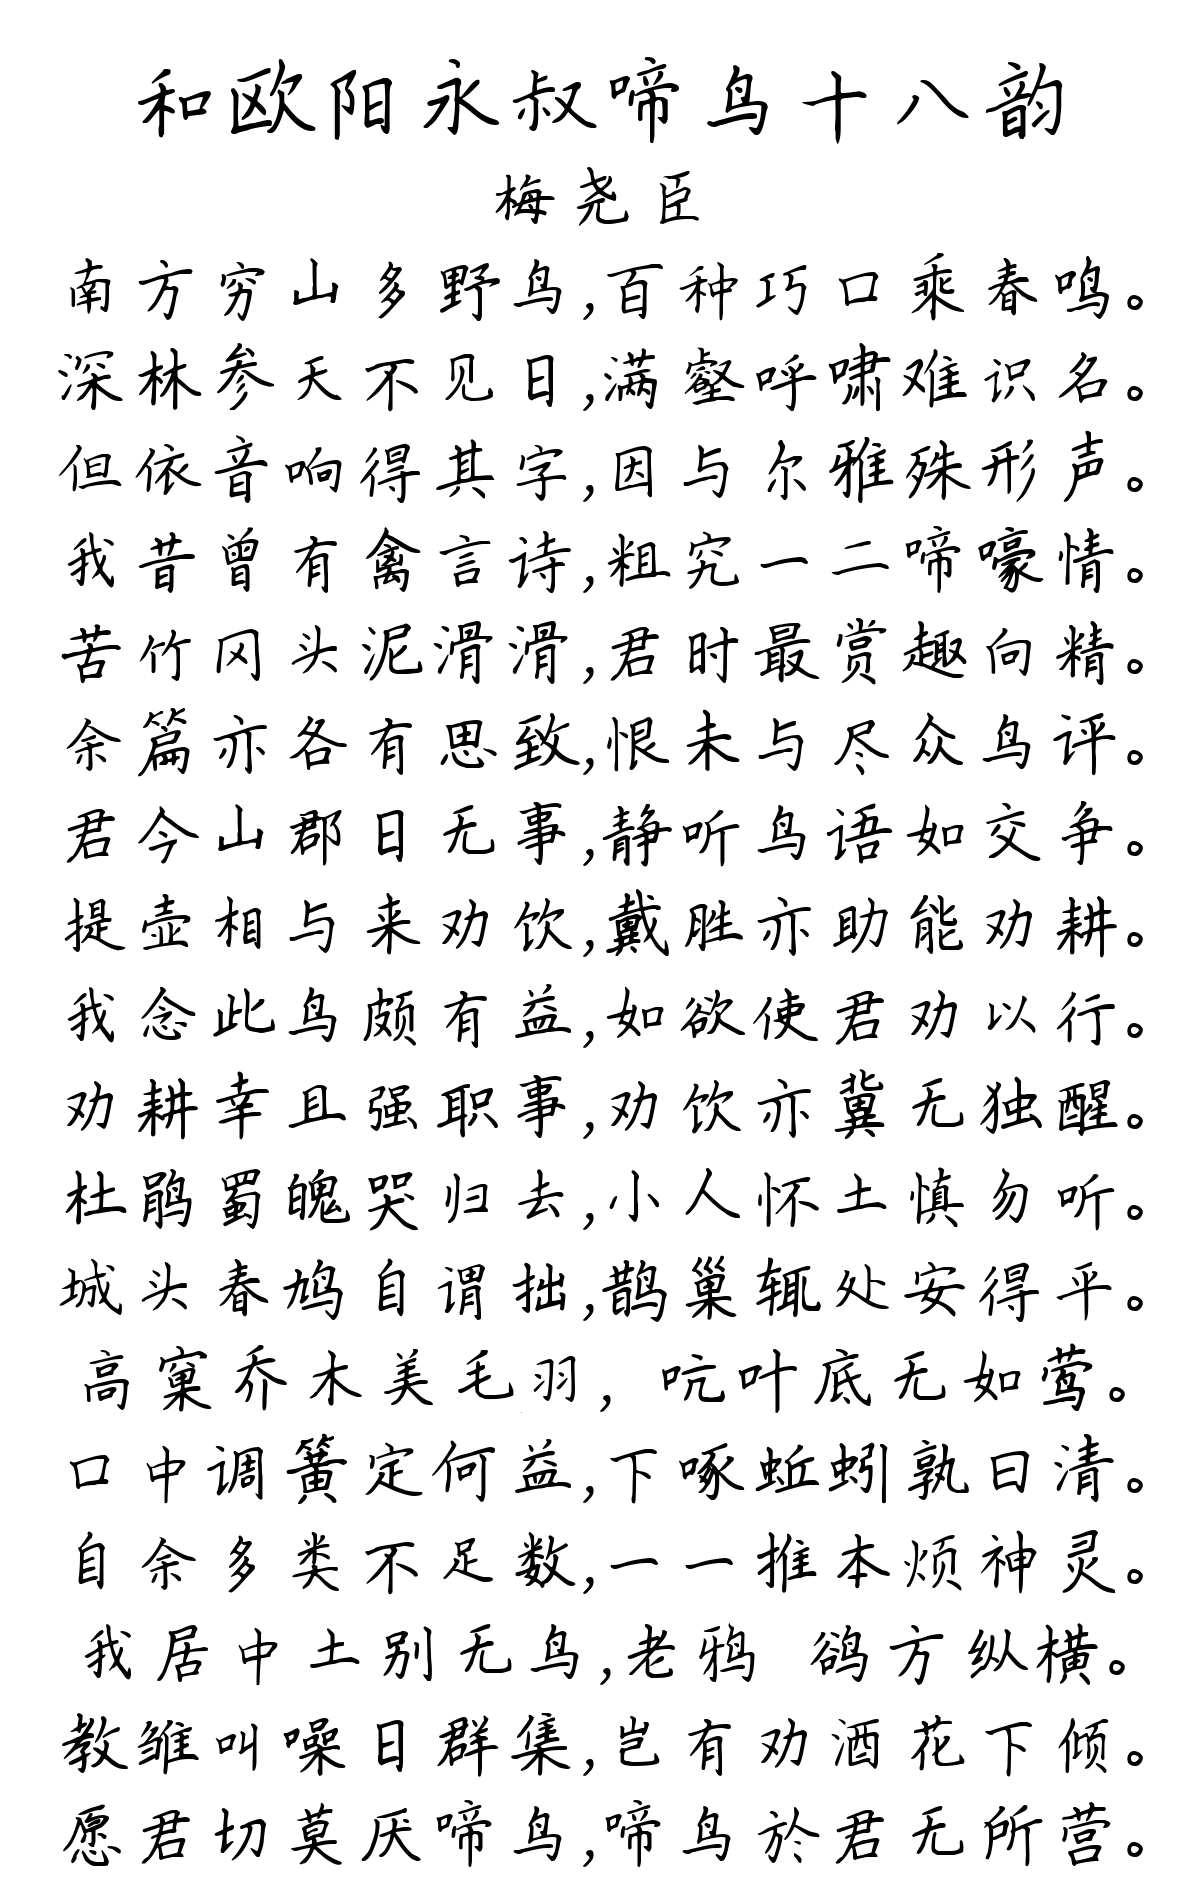 和欧阳永叔啼鸟十八韵
梅尧臣
南方穷山多野鸟,百种巧口乘春鸣。
深林参天不见日,满壑呼啸难识名。
但依音响得其字,因与尔雅殊形声。
我昔曾有禽言诗,粗究一二啼嚎情。
苦竹冈头泥滑滑,君时最赏趣向精。
余篇亦各有思致,恨未与尽众鸟评。
君今山郡日无事,静听鸟语如交争。
提壶相与来劝饮,戴胜亦助能劝耕。
我念此鸟颇有益,如欲使君劝以行。
劝耕幸且强职事,劝饮亦冀无独醒。
杜鹃蜀魄哭归去,小人怀土慎勿听。
城头春鸠自谓拙,鹊巢辄处安得平。
高窠乔木美毛羽，吭叶底无如莺。
口中调簧定何益,下啄蚯蚓孰曰清。
自余多类不足数,一一推本烦神灵。
我居中土别无鸟,老鸦 鹆方纵横。
教雏叫噪日群集,岂有劝酒花下倾。
愿君切莫厌啼鸟,啼鸟於君无所营。